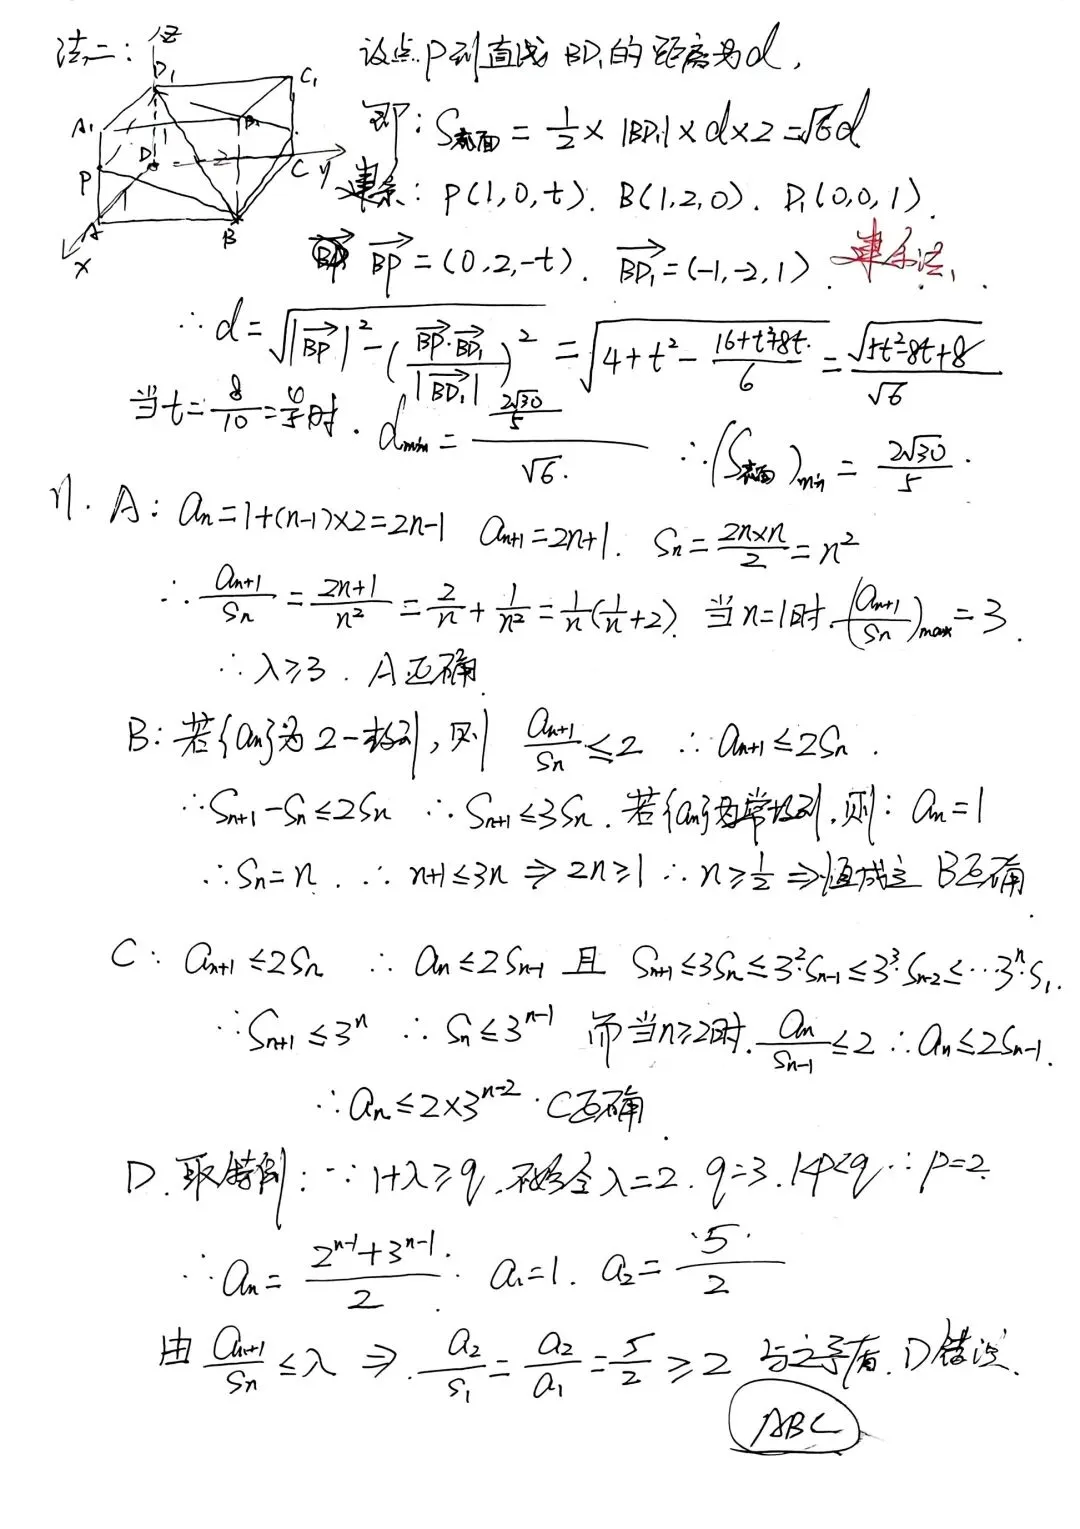 法二: z D₁ C₁ A₁ B₁ D 2 C y P 1 A B x
设点P到直线BD₁的距离为d,
即: S截面 = 1/2 × |BD₁| × d × 2 = √6 d
建系: P(1,0,t). B(1,2,0). D₁(0,0,1).
BP→ = (0,2,-t). BD₁→ = (-1,-2,1). 建系法.
∴ d = √(|BP→|² - (BP→·BD₁→/|BD₁→|)²) = √(4+t² - (16+t²+8t)/6) = √(5t²-8t+8)/√6
当t = 8/10 = 4/5时. dmin = (2√30/5)/√6. ∴ (S截面)min = 2√30/5.
11. A: aₙ = 1+(n-1)×2 = 2n-1 aₙ₊₁ = 2n+1. Sₙ = 2n×n/2 = n²
∴ aₙ₊₁/Sₙ = (2n+1)/n² = 2/n + 1/n² = 1/n(1/n+2). 当n=1时. (aₙ₊₁/Sₙ)max = 3.
∴ λ≥3. A正确.
B: 若{aₙ}为2-数列, 则 aₙ₊₁/Sₙ ≤ 2 ∴ aₙ₊₁ ≤ 2Sₙ.
∴ Sₙ₊₁ - Sₙ ≤ 2Sₙ ∴ Sₙ₊₁ ≤ 3Sₙ. 若{aₙ}为常数列, 则: aₙ = 1
∴ Sₙ = n. ∴ n+1 ≤ 3n ⇒ 2n ≥ 1 ∴ n ≥ 1/2 ⇒ 恒成立 B正确.
C: aₙ₊₁ ≤ 2Sₙ ∴ aₙ ≤ 2Sₙ₋₁ 且 Sₙ₊₁ ≤ 3Sₙ ≤ 3²·Sₙ₋₁ ≤ 3³·Sₙ₋₂ ≤ ⋯ 3ⁿ·S₁.
∴ Sₙ₊₁ ≤ 3ⁿ ∴ Sₙ ≤ 3ⁿ⁻¹ 而当n≥2时. aₙ/Sₙ₋₁ ≤ 2 ∴ aₙ ≤ 2Sₙ₋₁.
∴ aₙ ≤ 2×3ⁿ⁻². C正确.
D. 取特例: ∵ 1+λ ≥ q, 不妨令λ=2. q=3. 1<p<q ∴ p=2.
∴ aₙ = (2ⁿ⁻¹+3ⁿ⁻¹)/2. a₁=1. a₂ = 5/2
由 aₙ₊₁/Sₙ ≤ λ ⇒ a₂/S₁ = a₂/a₁ = 5/2 ≥ 2 与之矛盾. D错误.
ABC